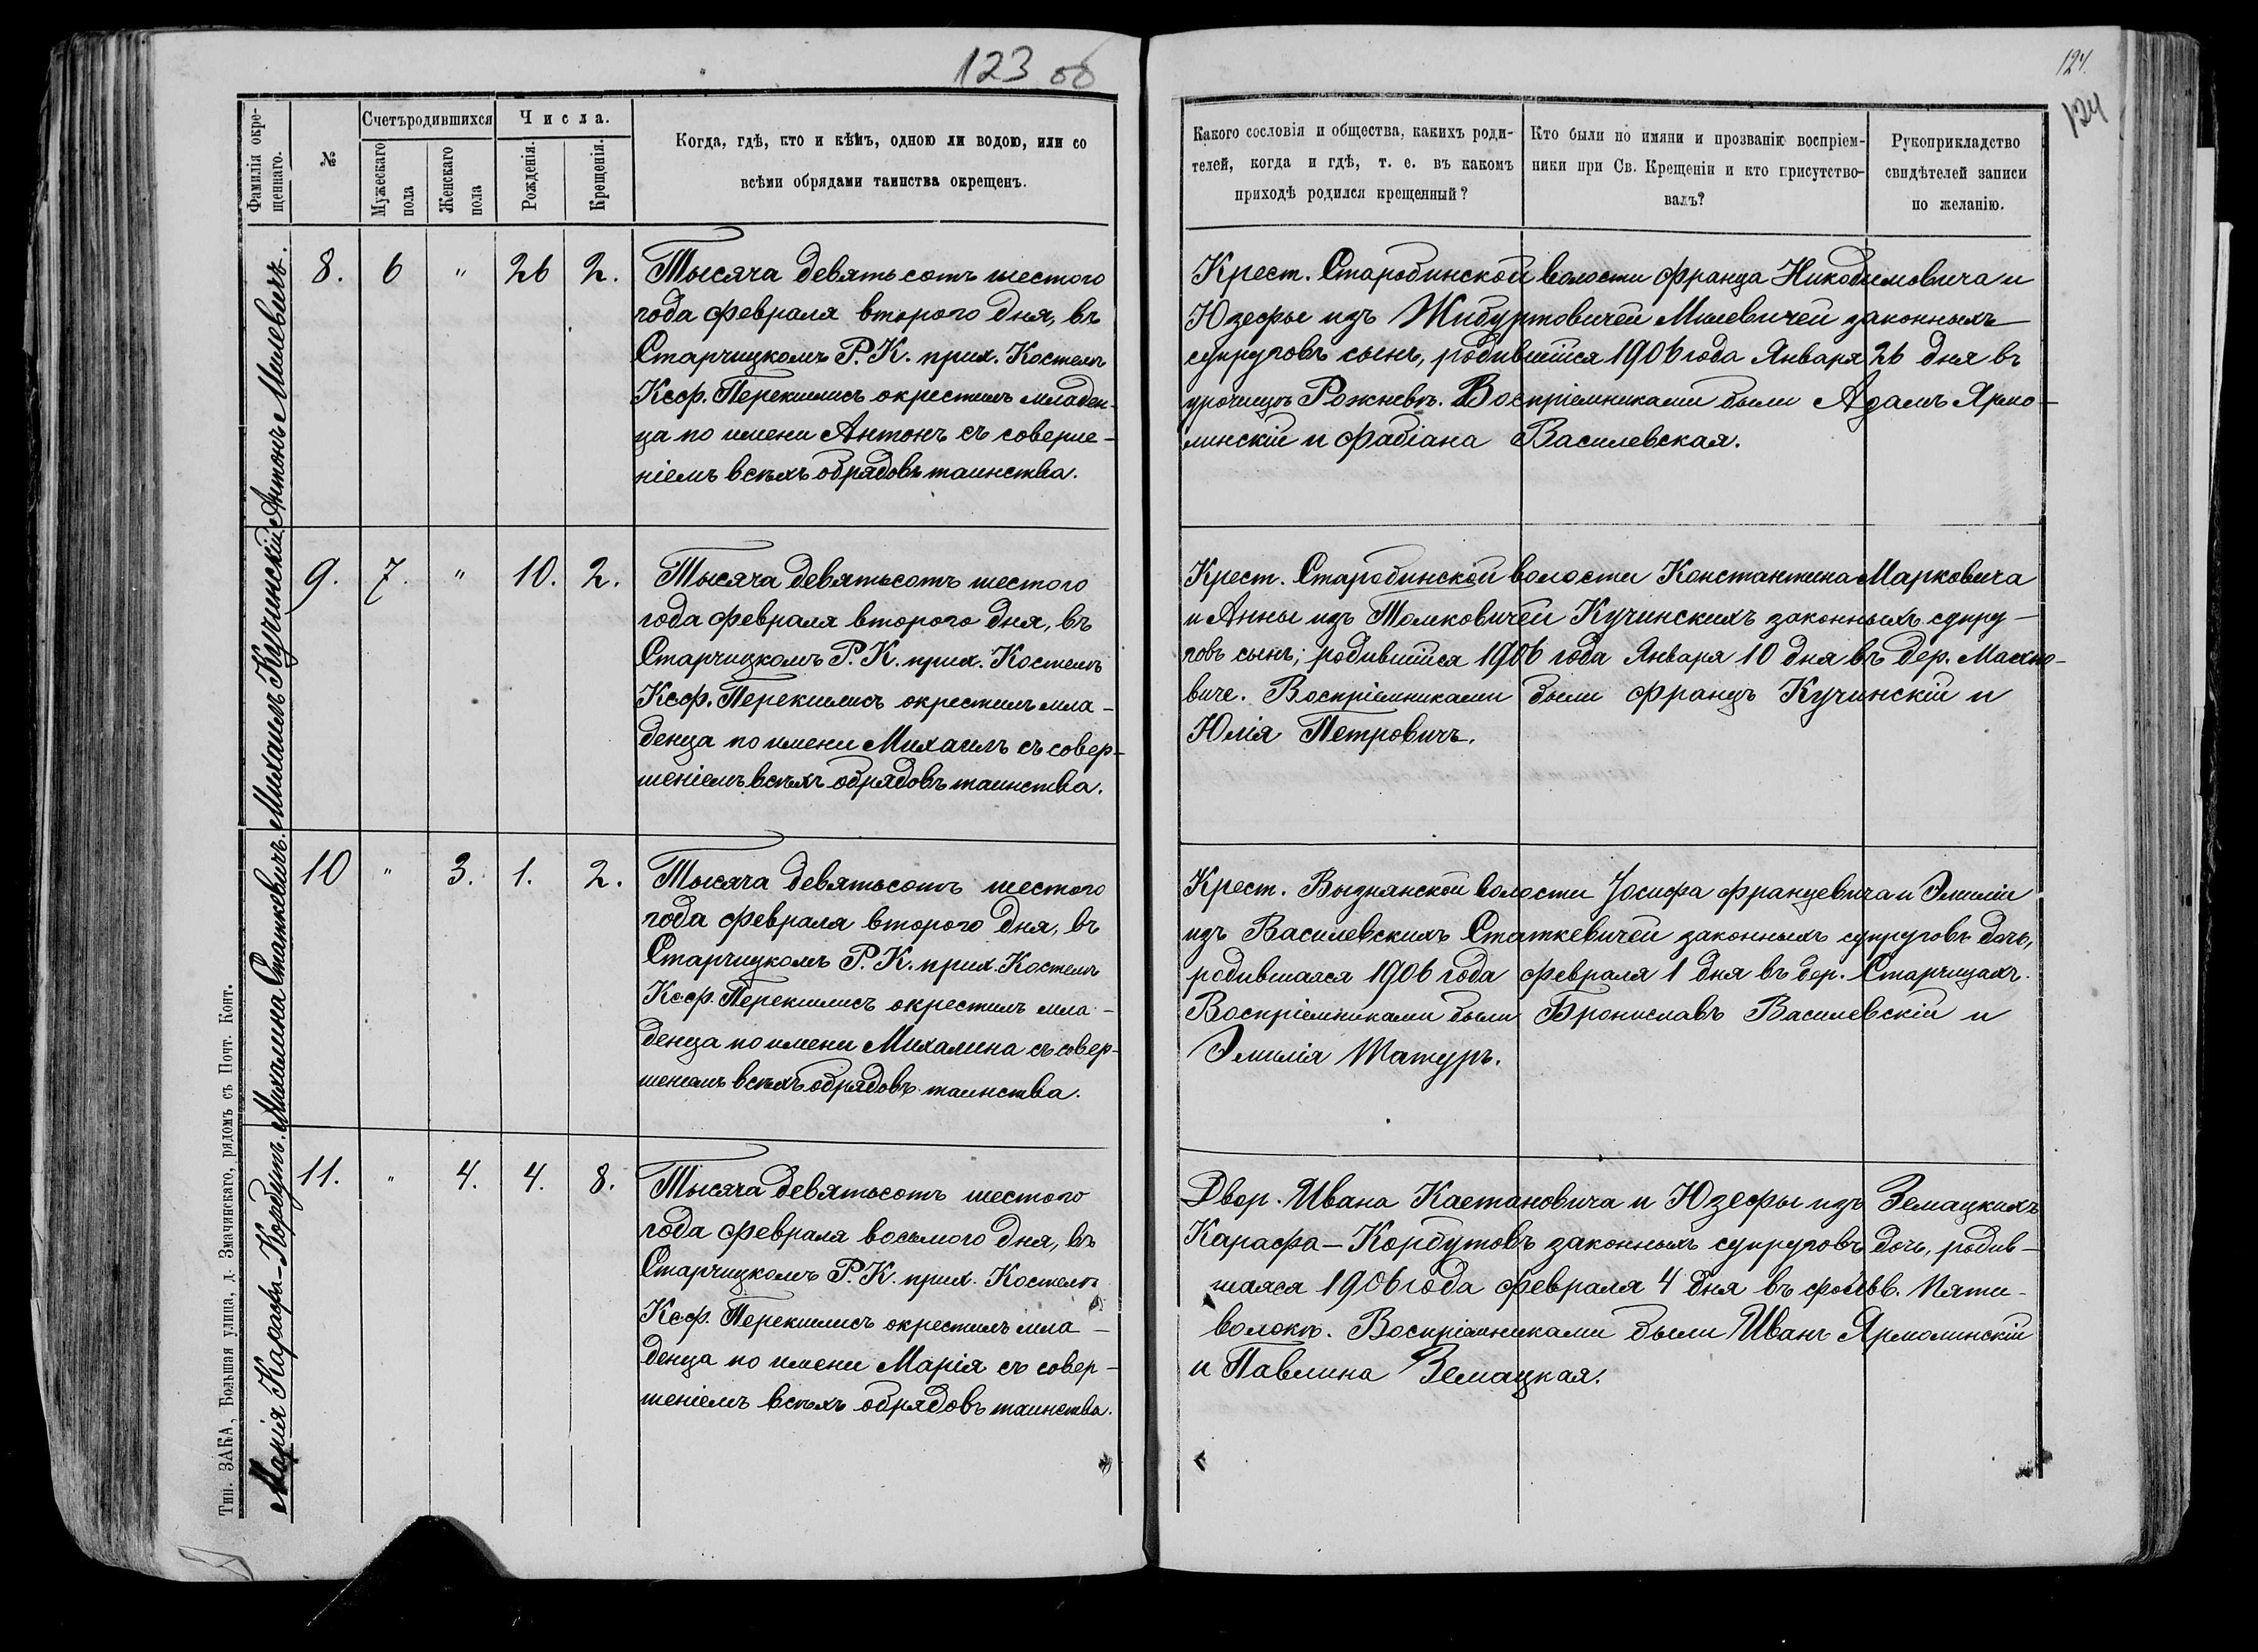 123 об
124.
124
Фамилія окре-
щеннаго.
№
Счетъ родившихся
Мужескаго
пола
Женскаго
пола
Числа.
Рожденія.
Крещенія.
Когда, гдѣ, кто и кѣмъ, одною ли водою, или со
всѣми обрядами таинства окрещенъ.
Какого сословія и общества, какихъ роди-
телей, когда и гдѣ, т. е. въ какомъ
приходѣ родился крещенный?
Кто были по имяни и прозванію воспріем-
ники при Св. Крещеніи и кто присутство-
валъ?
Рукоприкладство
свидѣтелей записи
по желанію.
Антонъ Милевичъ.
8. 6 " 26 2.
Тысяча девятьсотъ шестого
года февраля второго дня, въ
Старчицкомъ Р. К. прих. Костелѣ
Ксф. Перекшлисъ окрестилъ младен-
ца по имени Антонъ съ соверше-
ніемъ всѣхъ обрядовъ таинства.
Крест. Старобинской волости Франца Никодимовича и
Юзефы изъ Жибуртовичей Милевичей законныхъ
супруговъ сынъ, родившійся 1906 года Января 26 дня въ
урочищѣ Рожневѣ. Воспріемниками были Адамъ Ярмо-
линскій и Фабіана Василевская.
Михаилъ Кучинскій
9. 7. " 10. 2.
Тысяча девятьсотъ шестого
года февраля второго дня, въ
Старчицкомъ Р. К. прих. Костелѣ
Ксф. Перекшлисъ окрестилъ мла-
денца по имени Михаилъ съ совер-
шеніемъ всѣхъ обрядовъ таинства.
Крест. Старобинской волости Константина Марковича
и Анны изъ Толковичей Кучинскихъ законныхъ супру-
говъ сынъ, родившійся 1906 года Января 10 дня въ дер. Махно-
виче. Воспріемниками были Францъ Кучинскій и
Юлія Петровичъ.
Михалина Статкевичъ.
10 " 3. 1. 2.
Тысяча девятьсотъ шестого
года февраля второго дня, въ
Старчицкомъ Р. К. прих. Костелѣ
Ксф. Перекшлисъ окрестилъ мла-
денца по имени Михалина съ совер-
шеніемъ всѣхъ обрядовъ таинства.
Крест. Вызнянской волости Іосифа Францевича и Эмиліи
изъ Василевскихъ Статкевичей законныхъ супруговъ дочь,
родившаяся 1906 года февраля 1 дня въ дер. Старчицахъ.
Воспріемниками были Брониславъ Василевскій и
Эмилія Шатуръ.
Марія Карафа-Корбутъ.
11. " 4. 4. 8.
Тысяча девятьсотъ шестого
года февраля восьмого дня, въ
Старчицкомъ Р. К. прих. Костелѣ
Ксф. Перекшлисъ окрестилъ мла-
денца по имени Марія съ совер-
шеніемъ всѣхъ обрядовъ таинства.
Двор. Ивана Каетановича и Юзефы изъ Земацкихъ
Карафа-Корбутовъ законныхъ супруговъ дочь, родив-
шаяся 1906 года февраля 4 дня въ фольв. Пяти-
волокѣ. Воспріемниками были Иванъ Ярмолинскій
и Павлина Земацкая.
Тип. ЗАКА, Большая улица, д. Змачинскаго, рядомъ съ Почт. Конт.